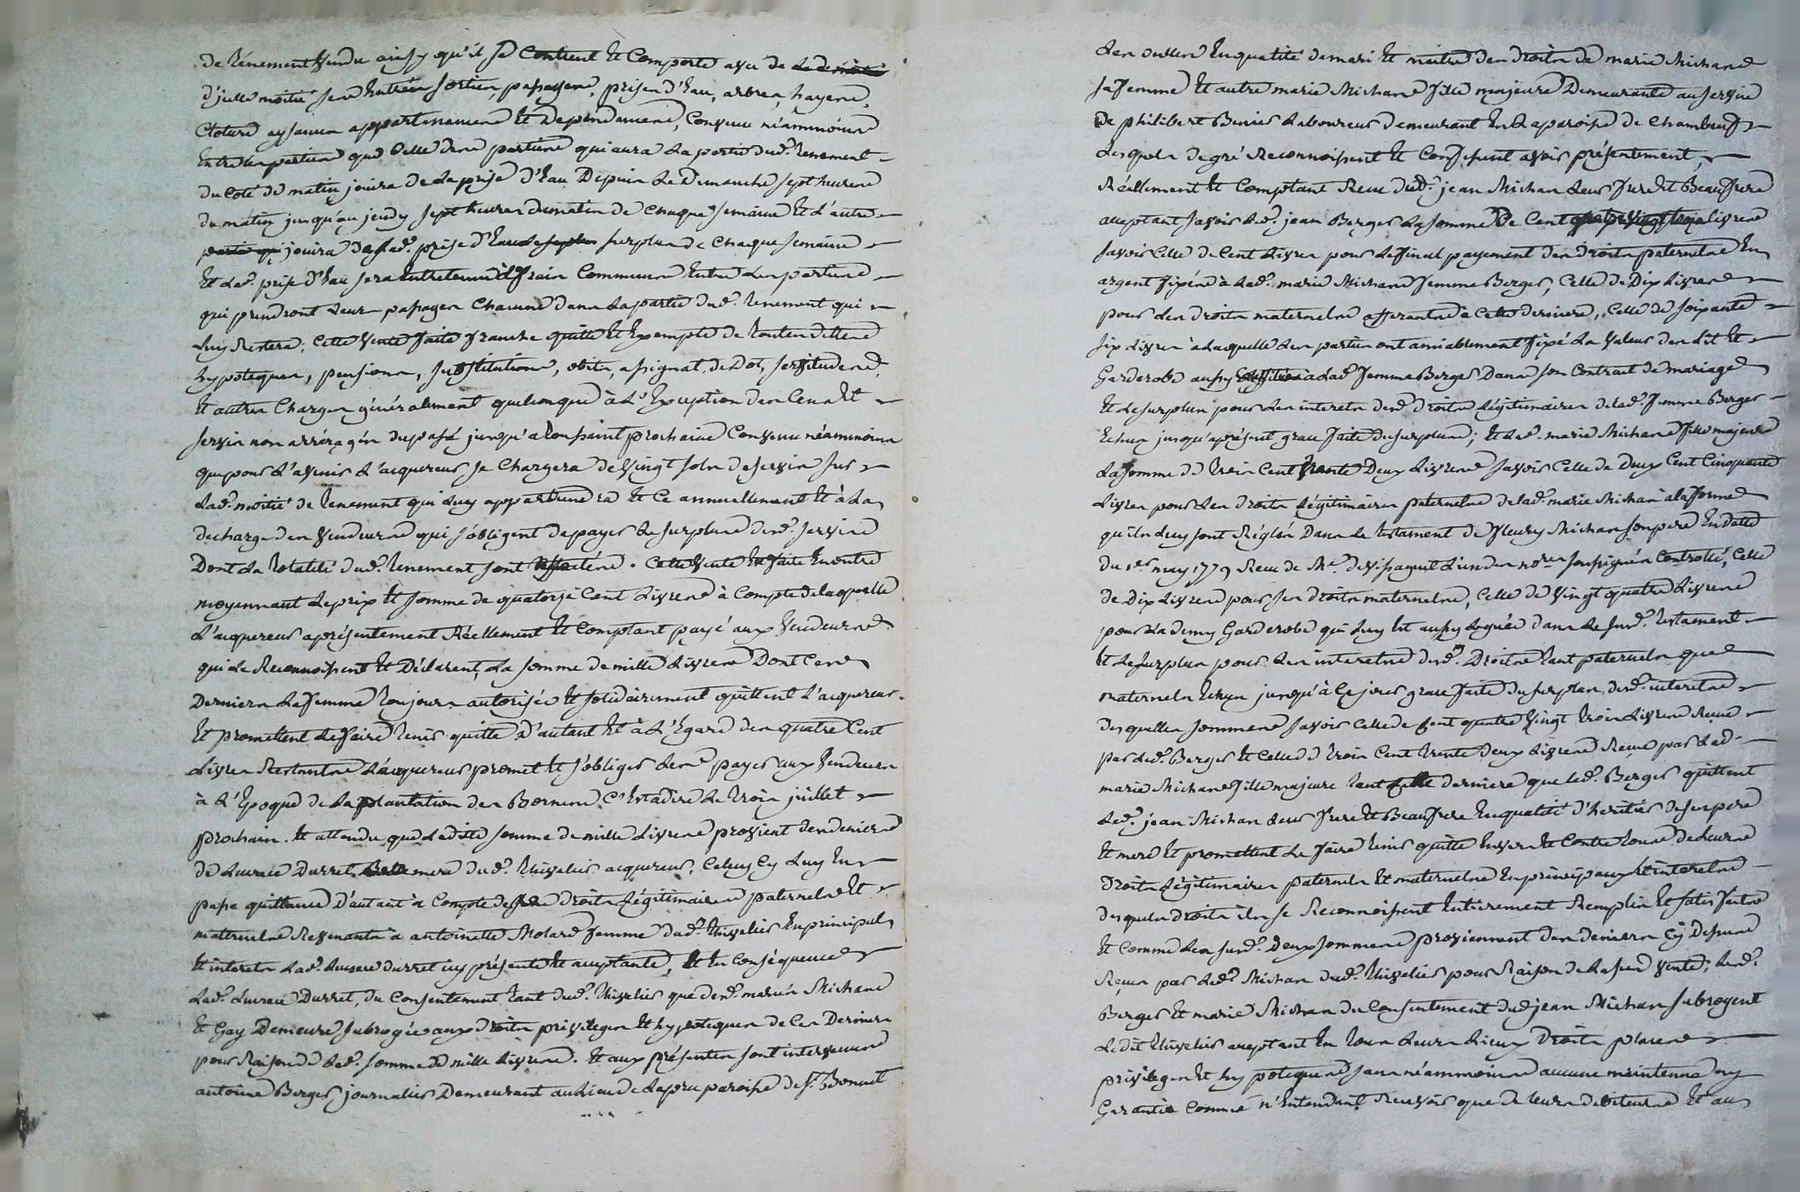 de tènement vendu ainsy qu'il se Contient et Comporte avec de
d'jcelle moitié ses Entrées sorties, passages, prises d'Eau, arbres, hayes
Cloture aysances appartenances et Dependances, Convenu néammoins
Entre les parties que Celle des parties qui aura la portie dud. tenement
du coté de matin jouira de la prise d'Eau Depuis Le Dimanche sept heures
du matin jusqu'au jeudy sept heures du matin de chaque semaine et l'autre
jouira de lad. prise d'Eau le surplus de Chaque semaine
Et lad. prise d'Eau sera Entretenue à frais Communs Entre les parties
qui prendront leurs passages Chacune dans la partie dud. tenement qui
luy Restera. Cette Vente faite franche quitte et Exempte de toutes dettes
hypoteques, pensions, substitutions, obits, assignat, de Dot, servitudes
Et autres Charges généralement quelconques à L'Exception des Cens et
servis non arréragés du passé jusqu'a la toussaint prochaine Convenu néammoins
que pour l'avenir l'acquereur se Chargera de Vingt sols de servis sur
lad. moitié de tenement qui luy appartiendra et Ce annuellement Et à la
decharge des Vendeurs qui s'obligent de payer le surplus desd. servis
Dont la totalité dud. tenement sont affectés. Cette Vente Est faite En outre
moyennant le prix Et somme de quatorze Cent Livres à Compte de laquelle
L'acquereur a présentement Réellement Et Comptant payé aux Vendeurs
qui le Reconnoissent Et Déclarent, la somme de mille Livres Dont Ces
Derniers la femme toujours autorisée Et solidairement quittent L'acquereur
Et promettent le faire tenir quitte d'autant Et à L'Egard des quatre Cent
Livres Restantes L'acquereur promet Et s'obliger les payer aux Vendeurs
à L'Epoque de la plantation des Bornes C'Estadire Le trois juillet
prochain. Et attendu que ladite somme de mille Livres provient des deniers
de Lucrece Durret, Belle mere dud. Thivelier acquereur, Celuy Cy Luy En
passe quittance D'autant à Compte de ses droits Légitimaires paternels Et
maternels Revenants à antoinette Molard femme dud. Thivelier En principal
Et interets lad. Lucrece Durret icy présente Et acceptante, Et En Conséquence
lad. Lucrece Durret, du Consentement tant dud. Thivelier que desd. mariés Michan
Et Gay Demeure subrogée aux droits privileges Et hypoteques de Ces Derniers
pour Raison de lad. somme de mille Livres. Et aux présentes sont intervenus
antoine Berger journalier Demeurant au Lieu de Lapra paroisse de St. Bonnet
Les Oulles En qualité de mari Et maitre des droits de marie Michan
sa femme Et autre marie Michan fille majeure Demeurante au servis
De philibert Benier Laboureur demeurant En La paroisse de Chambeuf
Lesquels de gré Reconnoissent Et Confessent avoir présentement
Réellement Et Comptant Receu dud. jean Michan leur frere Et Beau frere
acceptant savoir led. jean Berger La somme De Cent quatre vingt trois livres
savoir Celle de Cent Livres pour le final payement des droits paternels En
argent fixés à lad. marie Michan femme Berger, Celle de Dix Livres
pour les droits maternels afferants à Cette derniere, Celle de soixante
six Livres à laquelle Les parties ont amiablement fixé La Valeur des Lit Et
Garderobe aussy à lad. femme Berger Dans son Contrat de mariage
Et le surplus pour les interets desd. droits Légitimaires de lad. femme Berger
Echus jusqu'aprésent grace faite du surplus; Et lad. marie Michan fille majeure
La somme de trois Cent trente Deux Livres savoir Celle de Deux Cent Cinquante
Livres pour les droits Légitimaires paternels de lad. marie Michan à la forme
qu'ils luy sont Réglés Dans Le testament de fleury Michan son pere En datte
du 1er. may 1779 Receu de Me. l'un des nores. soussignés Controllé, Celle
de Dix Livres pour ses droits maternels, Celle de Vingt quatre Livres
pour La demy Garderobe qui Luy Est aussy Léguée dans Le susd. testament
Et Le surplus pour Les interets desd. Droits tant paternels que
maternels Echus jusqu'à Ce jour grace faite du surplus desd. interets
desquelles sommes savoir Celle de Cent quatre Vingt trois Livres Receue
par led. Berger Et Celle de trois Cent trente deux Livres Receue par lad.
marie Michan fille majeure tant Cette derniere que led. Berger quittent
led. jean Michan leur frere Et Beau frere En qualité d'heritier de ses pere
Et mere Et promettent Le faire tenir quitte Envers Et Contre tous de leurs
droits Légitimaires paternels Et maternels En principaux Et interets
desquels droits ils se Reconnoissent Entierement Remplis Et satisfaits
Et Comme Les susd. deux sommes proviennent des deniers Cy Dessus
Receus par led. Michan dud. Thivelier pour Raison de la susd. Vente; Led.
Berger Et marie Michan du Consentement dud jean Michan subrogent
Ledit Thivelier acceptant En tous Leurs Lieux Droits places
privileges Et hypoteques sans néammoins aucune maintenue ny
Garantie Comme n'Entendant Recevoir que de leurs debiteurs Et au